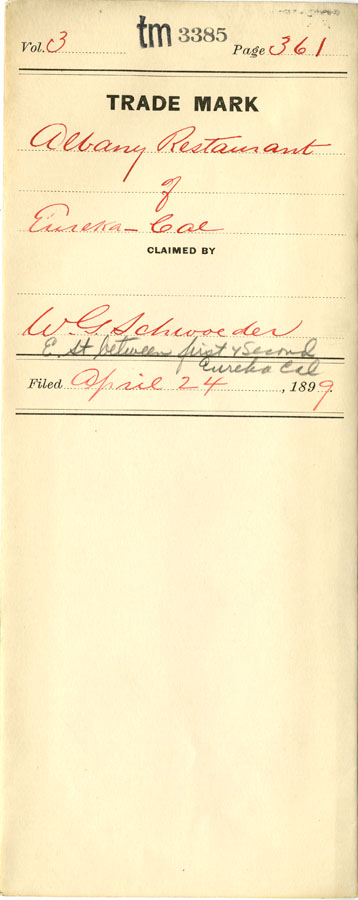 Vol. 3 tm 3385 Page 361
TRADE MARK
Albany Restaurant
of
Eureka - Cal
CLAIMED BY
W. G. Schwoeder
E. St between first & Second
Eureka Cal
Filed April 24, 1899.